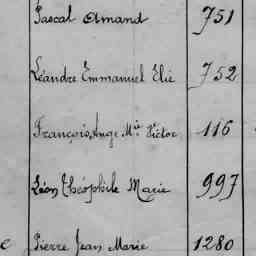 Pascal Amand 751
Léandre Emmanuel Elie 752
François, Ange Mie Victor 116
Léon Théophile Marie 997
e Pierre Jean Marie 1280